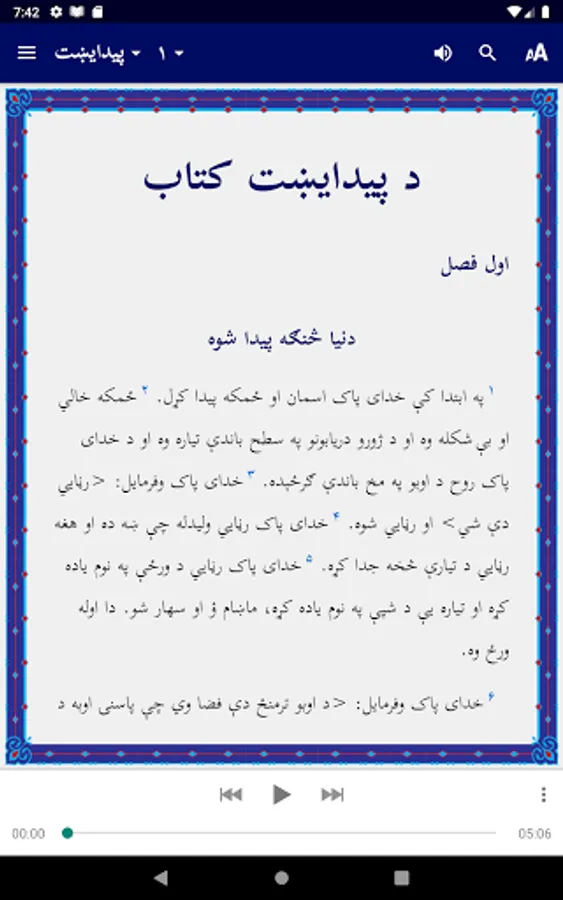 7:42
پيدايښت ١
AA
د پيدايښت کتاب
اول فصل
دنيا څنګه پيدا شوه
١ په ابتدا کې خدای پاک اسمان او ځمکه پيدا کړل. ٢ ځمکه خالي
او بې شکله وه او د ژورو دريابونو په سطح باندې تياره وه او د خدای
پاک روح د اوبو په مخ باندې ګرځېده. ٣ خدای پاک وفرمايل: <رڼايي
دې شي> او رڼايي شوه. ۴ خدای پاک رڼايي وليدله چې ښه ده او هغه
رڼايي د تيارې څخه جدا کړه. ۵ خدای پاک رڼايي د ورځې په نوم ياده
کړه او تياره يې د شپې په نوم ياده کړه، ماښام ؤ او سهار شو. دا اوله
ورځ وه.
۶ خدای پاک وفرمايل: <د اوبو ترمنځ دې فضا وي چې پاسنی اوبه د
00:00 05:06